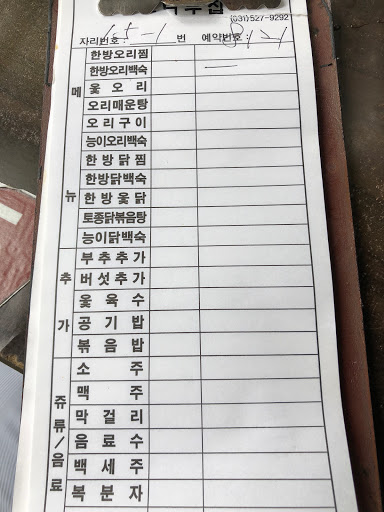 (031)527-9292
자리번호: 65-1 번 예약번호:
한방오리찜
한방오리백숙 一
옻오리
오리매운탕
오리구이
능이오리백숙
한방닭찜
한방닭백숙
한방옻닭
토종닭볶음탕
능이닭백숙
메뉴
부추추가
버섯추가
옻육수
공기밥
볶음밥
추가
소주
맥주
막걸리
음료수
백세주
복분자
쥬류/음료